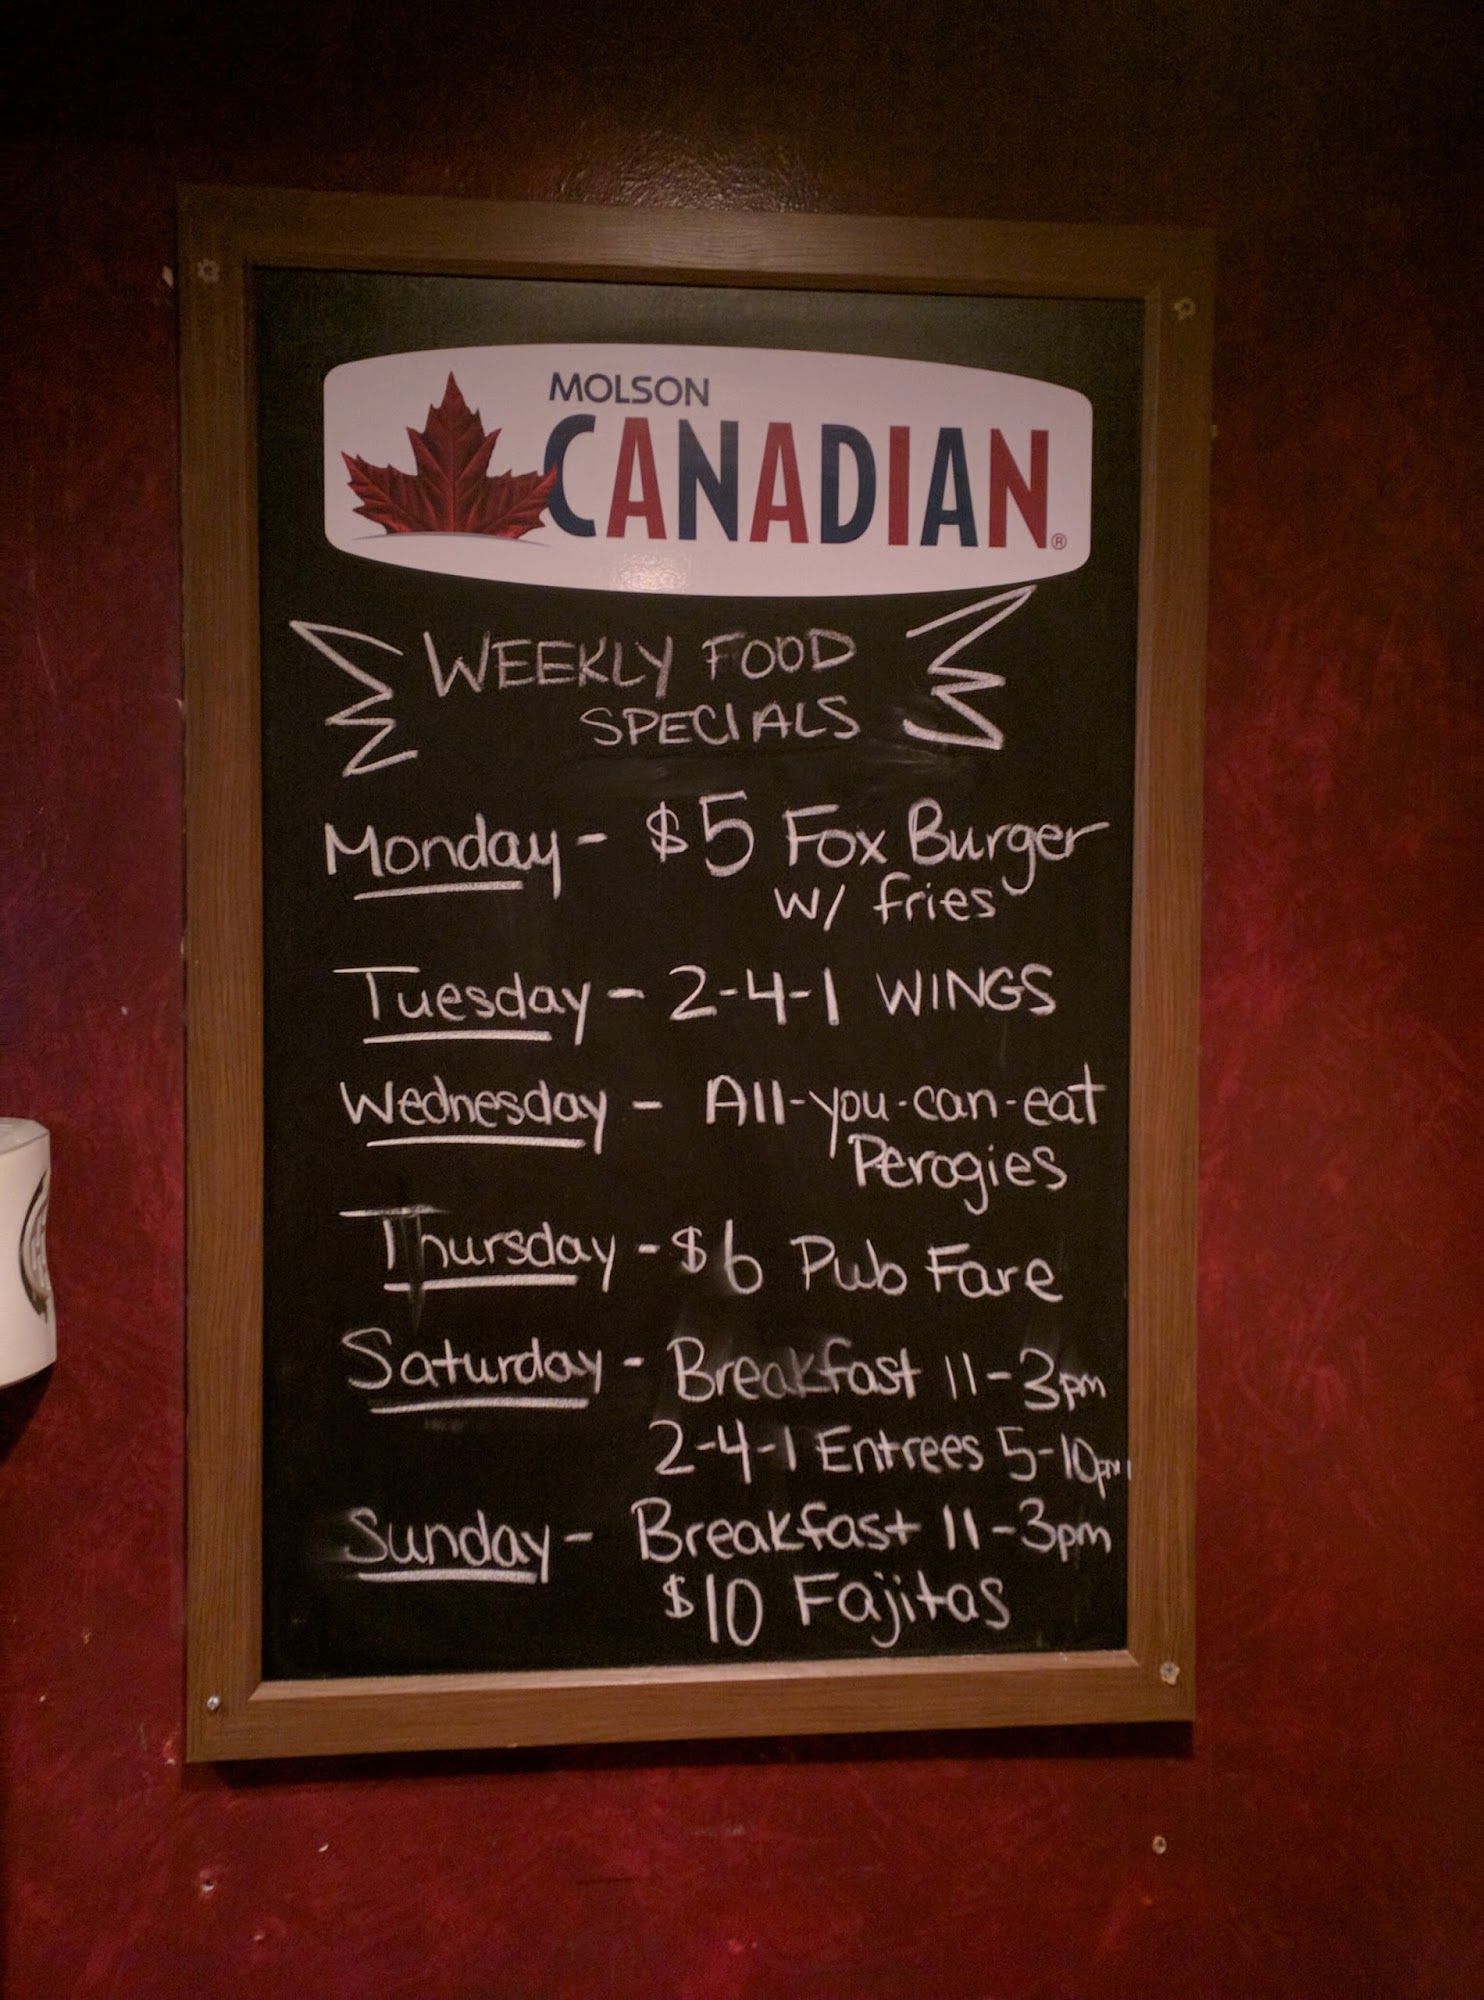 MOLSON
CANADIAN®
WEEKLY FOOD
SPECIALS
Monday - $5 Fox Burger
w/ fries
Tuesday - 2-4-1 WINGS
Wednesday - All-you-can-eat
Perogies
Thursday - $6 Pub Fare
Saturday - Breakfast 11-3pm
2-4-1 Entrees 5-10pm
Sunday - Breakfast 11-3pm
$10 Fajitas